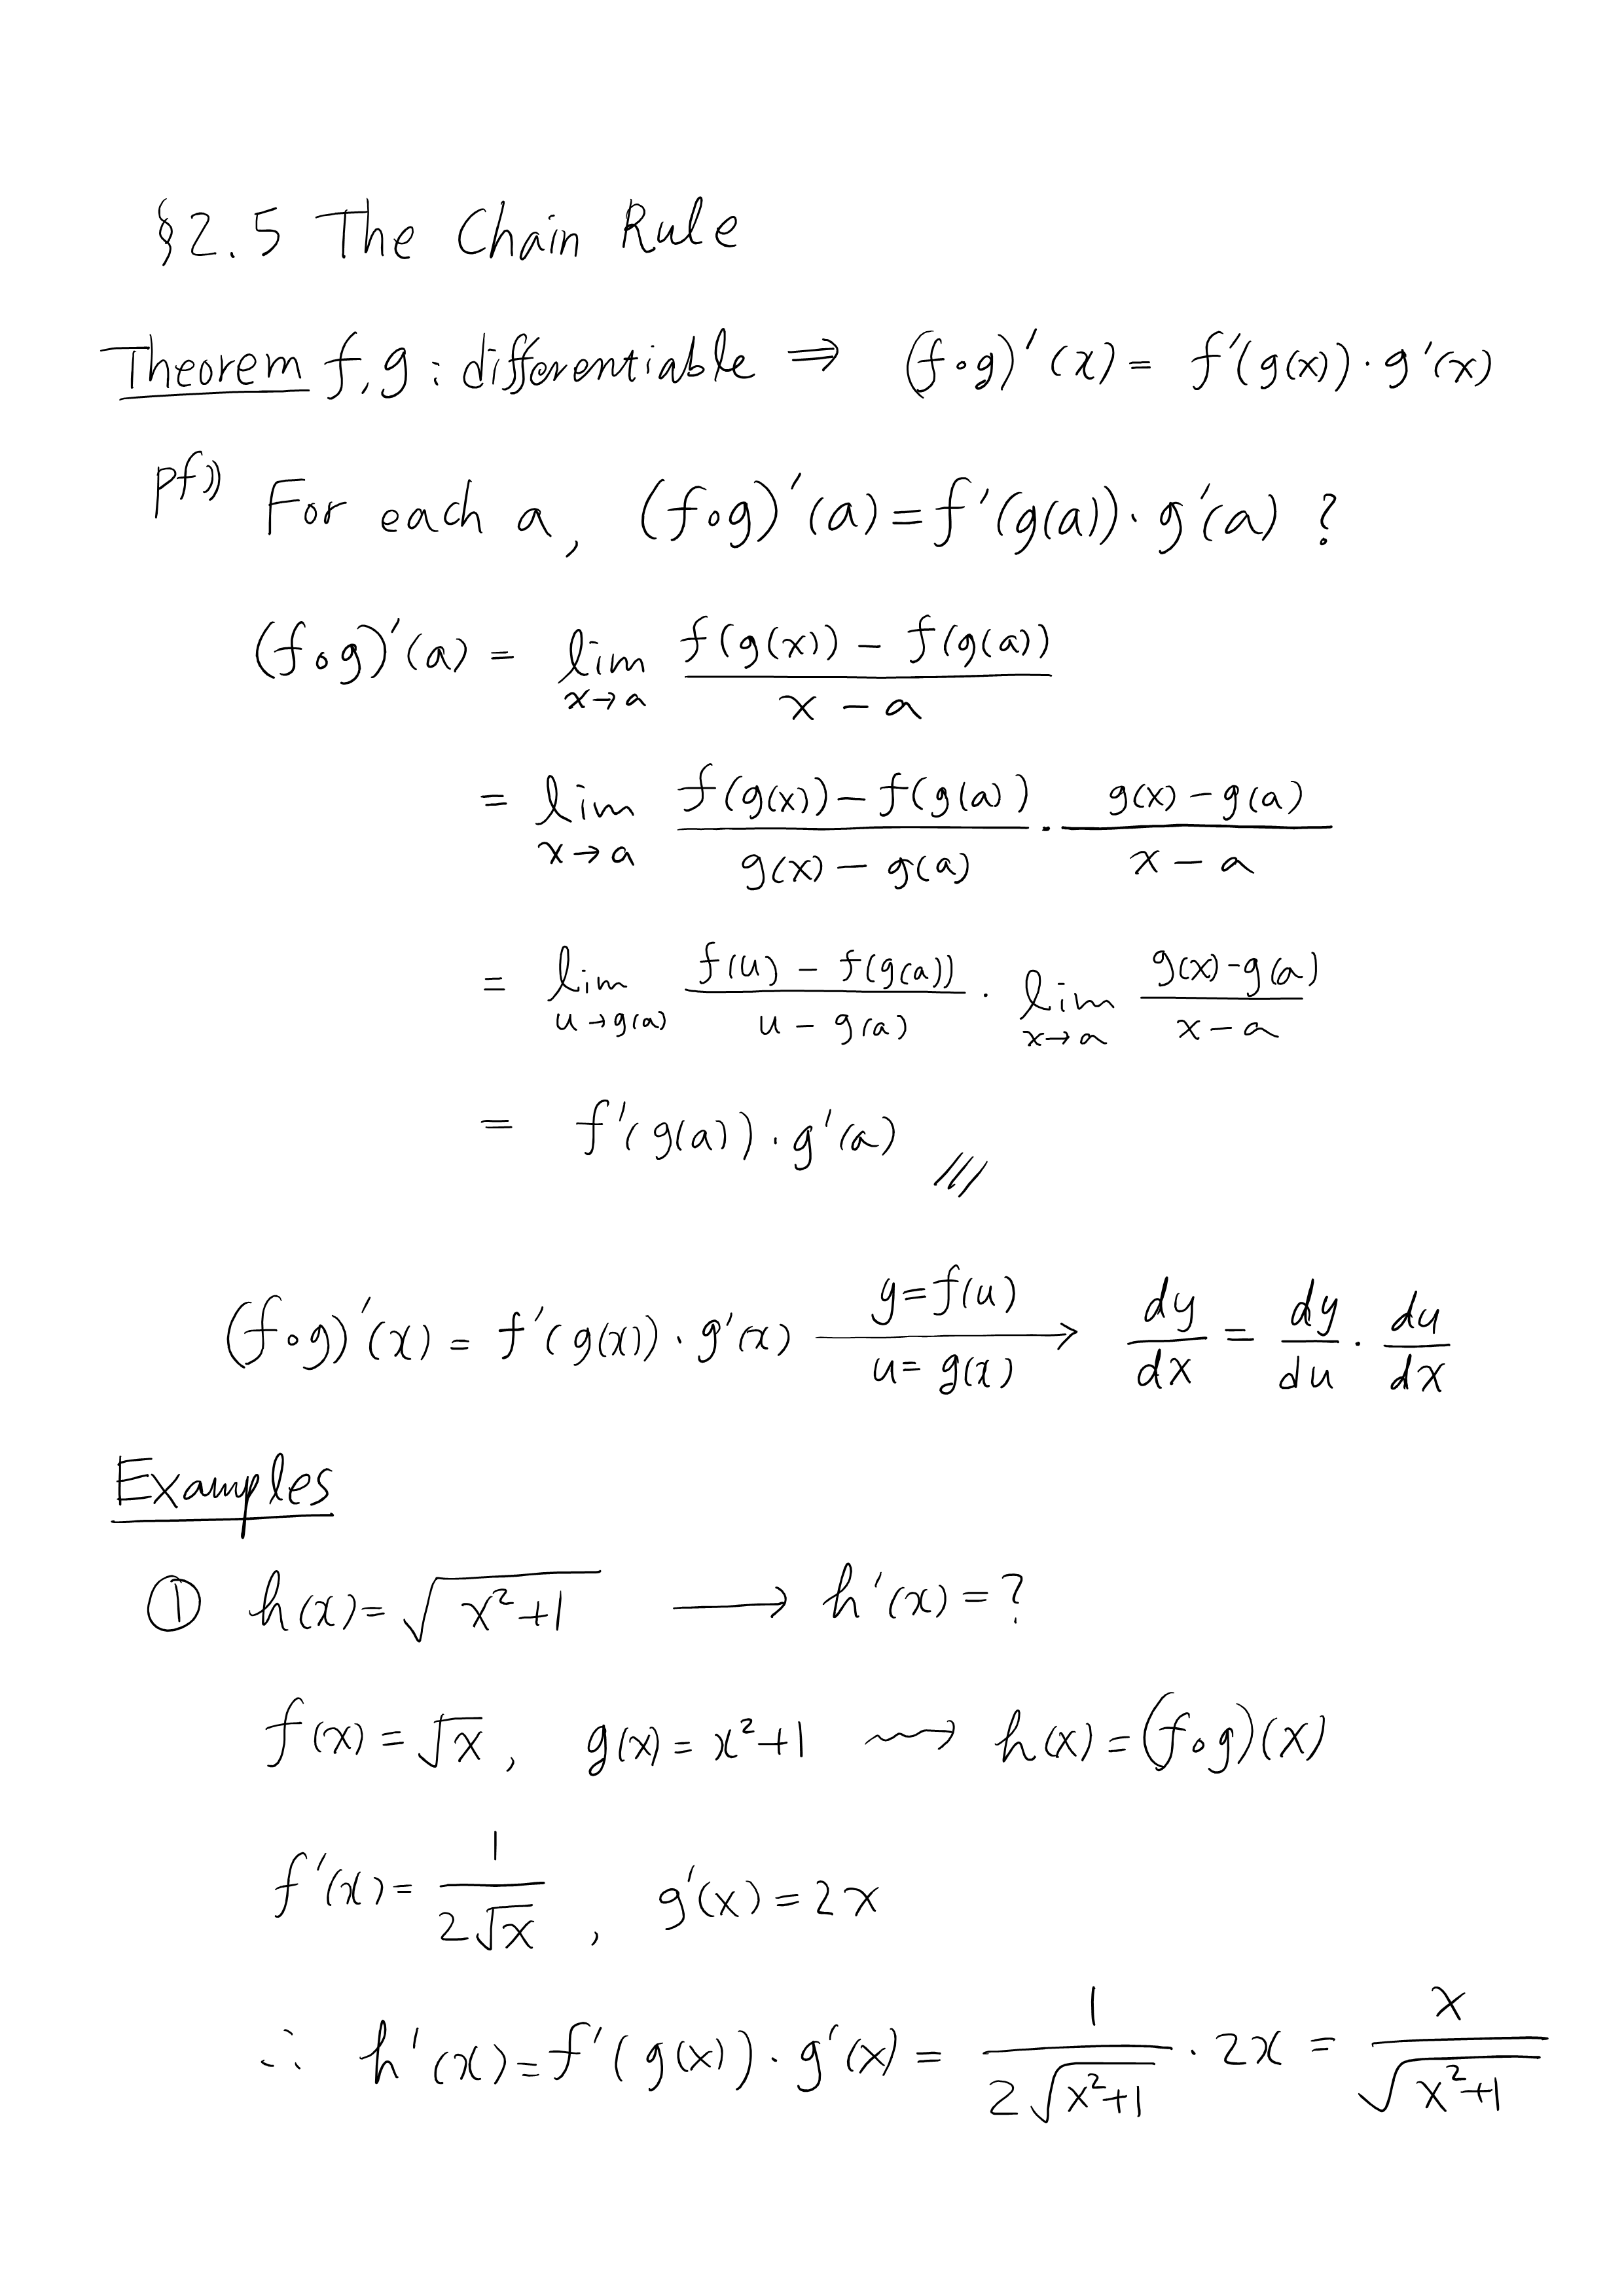 §2.5 The Chain Rule
Theorem f, g : differentiable ⇒ (f∘g)'(x) = f'(g(x))·g'(x)
pf)) For each a, (f∘g)'(a) = f'(g(a))·g'(a) ?
(f∘g)'(a) = lim_{x→a} \frac{f(g(x)) - f(g(a))}{x - a}
= lim_{x→a} \frac{f(g(x)) - f(g(a))}{g(x) - g(a)} · \frac{g(x) - g(a)}{x - a}
= lim_{u→g(a)} \frac{f(u) - f(g(a))}{u - g(a)} · lim_{x→a} \frac{g(x) - g(a)}{x - a}
= f'(g(a))·g'(a) ///
(f∘g)'(x) = f'(g(x))·g'(x) \xrightarrow[u = g(x)]{y = f(u)} \frac{dy}{dx} = \frac{dy}{du} · \frac{du}{dx}
Examples
① h(x) = \sqrt{x^2+1} ⟶ h'(x) = ?
f(x) = \sqrt{x}, g(x) = x^2+1 ⇝ h(x) = (f∘g)(x)
f'(x) = \frac{1}{2\sqrt{x}}, g'(x) = 2x
∴ h'(x) = f'(g(x))·g'(x) = \frac{1}{2\sqrt{x^2+1}} · 2x = \frac{x}{\sqrt{x^2+1}}